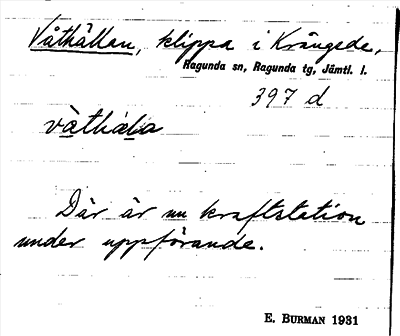 Våthällan, klippa i Krångede,
Ragunda sn, Ragunda tg, Jämtl. l.
397 d
Där är nu kraftstation
under uppförande.
E. BURMAN 1931